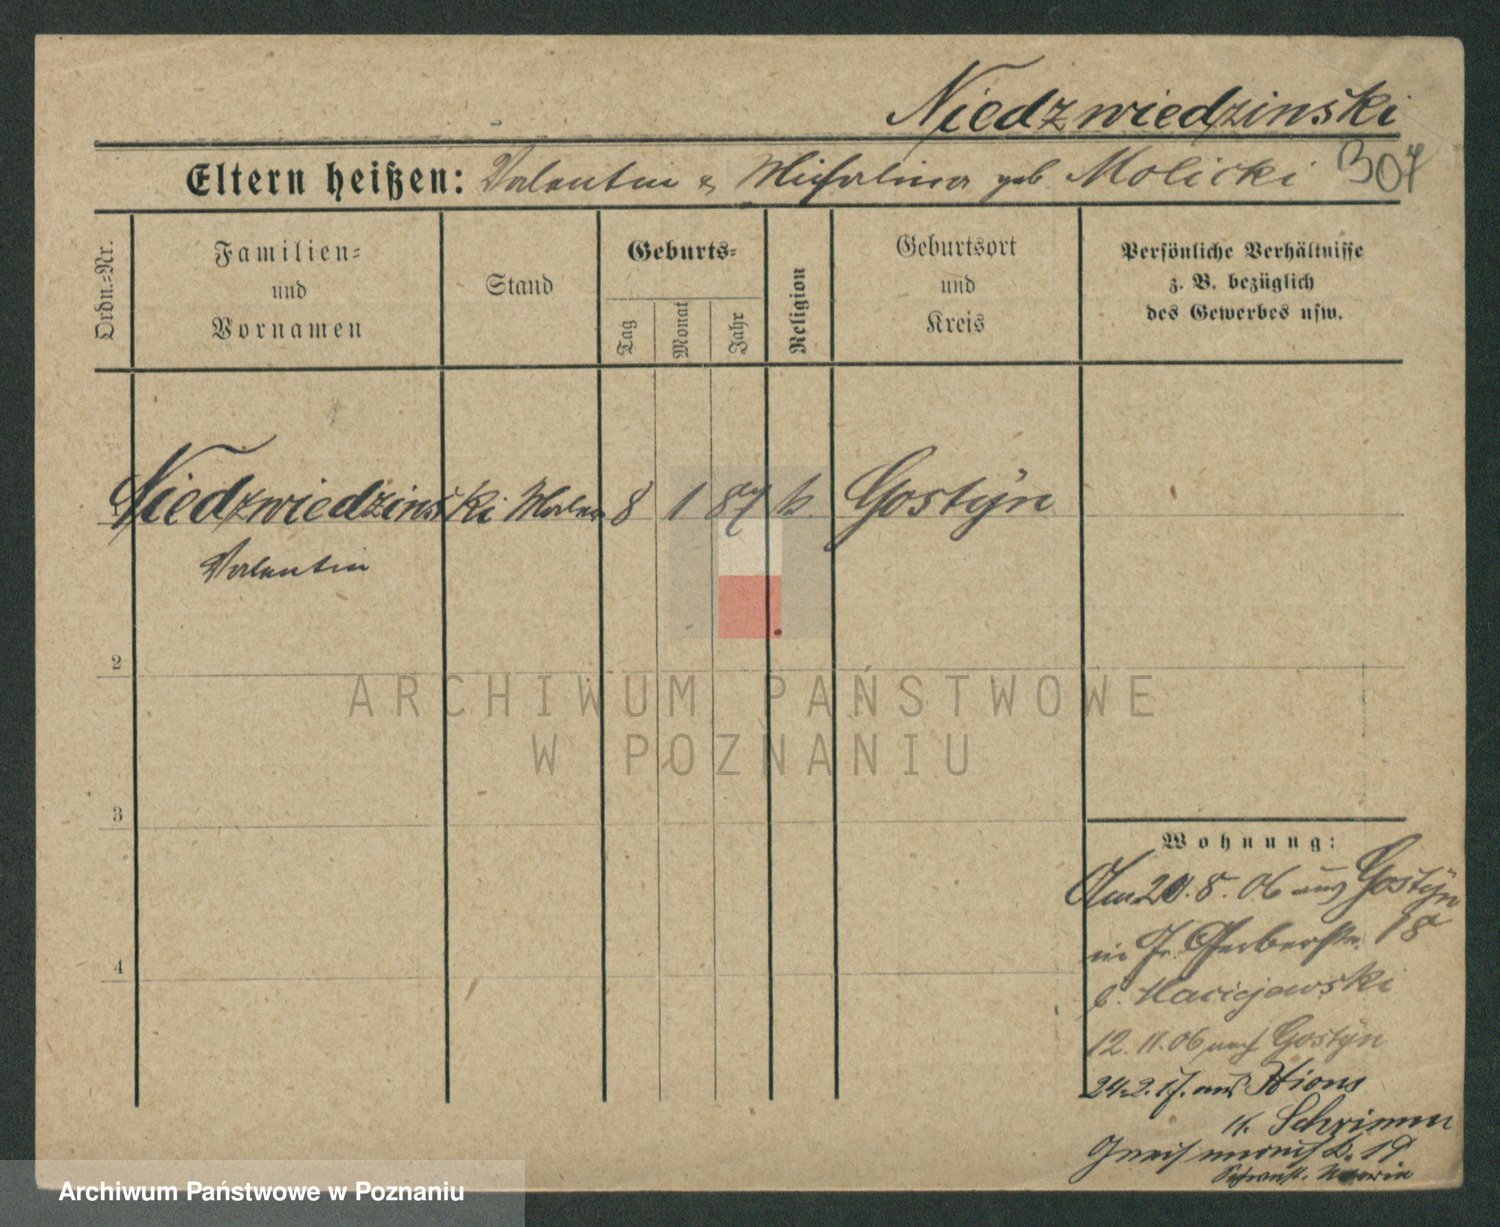 Niedzwiedzinski
Eltern heißen: Valentin & Michalina geb. Molicki 307
Ordn.=Nr.
Familien=
und
Vornamen
Stand
Geburts=
Tag
Monat
Jahr
Religion
Geburtsort
und
Kreis
Persönliche Verhältnisse
z. B. bezüglich
des Gewerbes usw.
Niedzwiedzinski Maler 8 1 87 k. Gostÿn
Valentin
2
3
4
ARCHIWUM PAŃSTWOWE
W POZNANIU
Wohnung:
Am 20.8.06 aus Gostÿn
in Gerberstr. 18
b. Maciejewski
12.11.06 nach Gostÿn
24.2.17. aus Xions
K. Schrimm
19
Archiwum Państwowe w Poznaniu